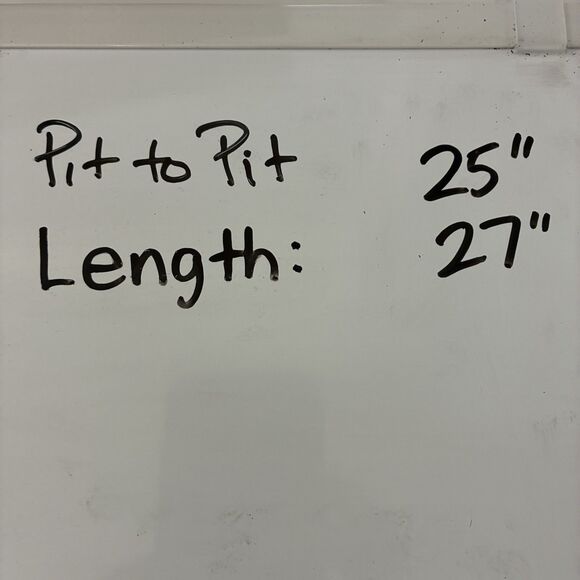 Pit to Pit 25"
Length: 27"